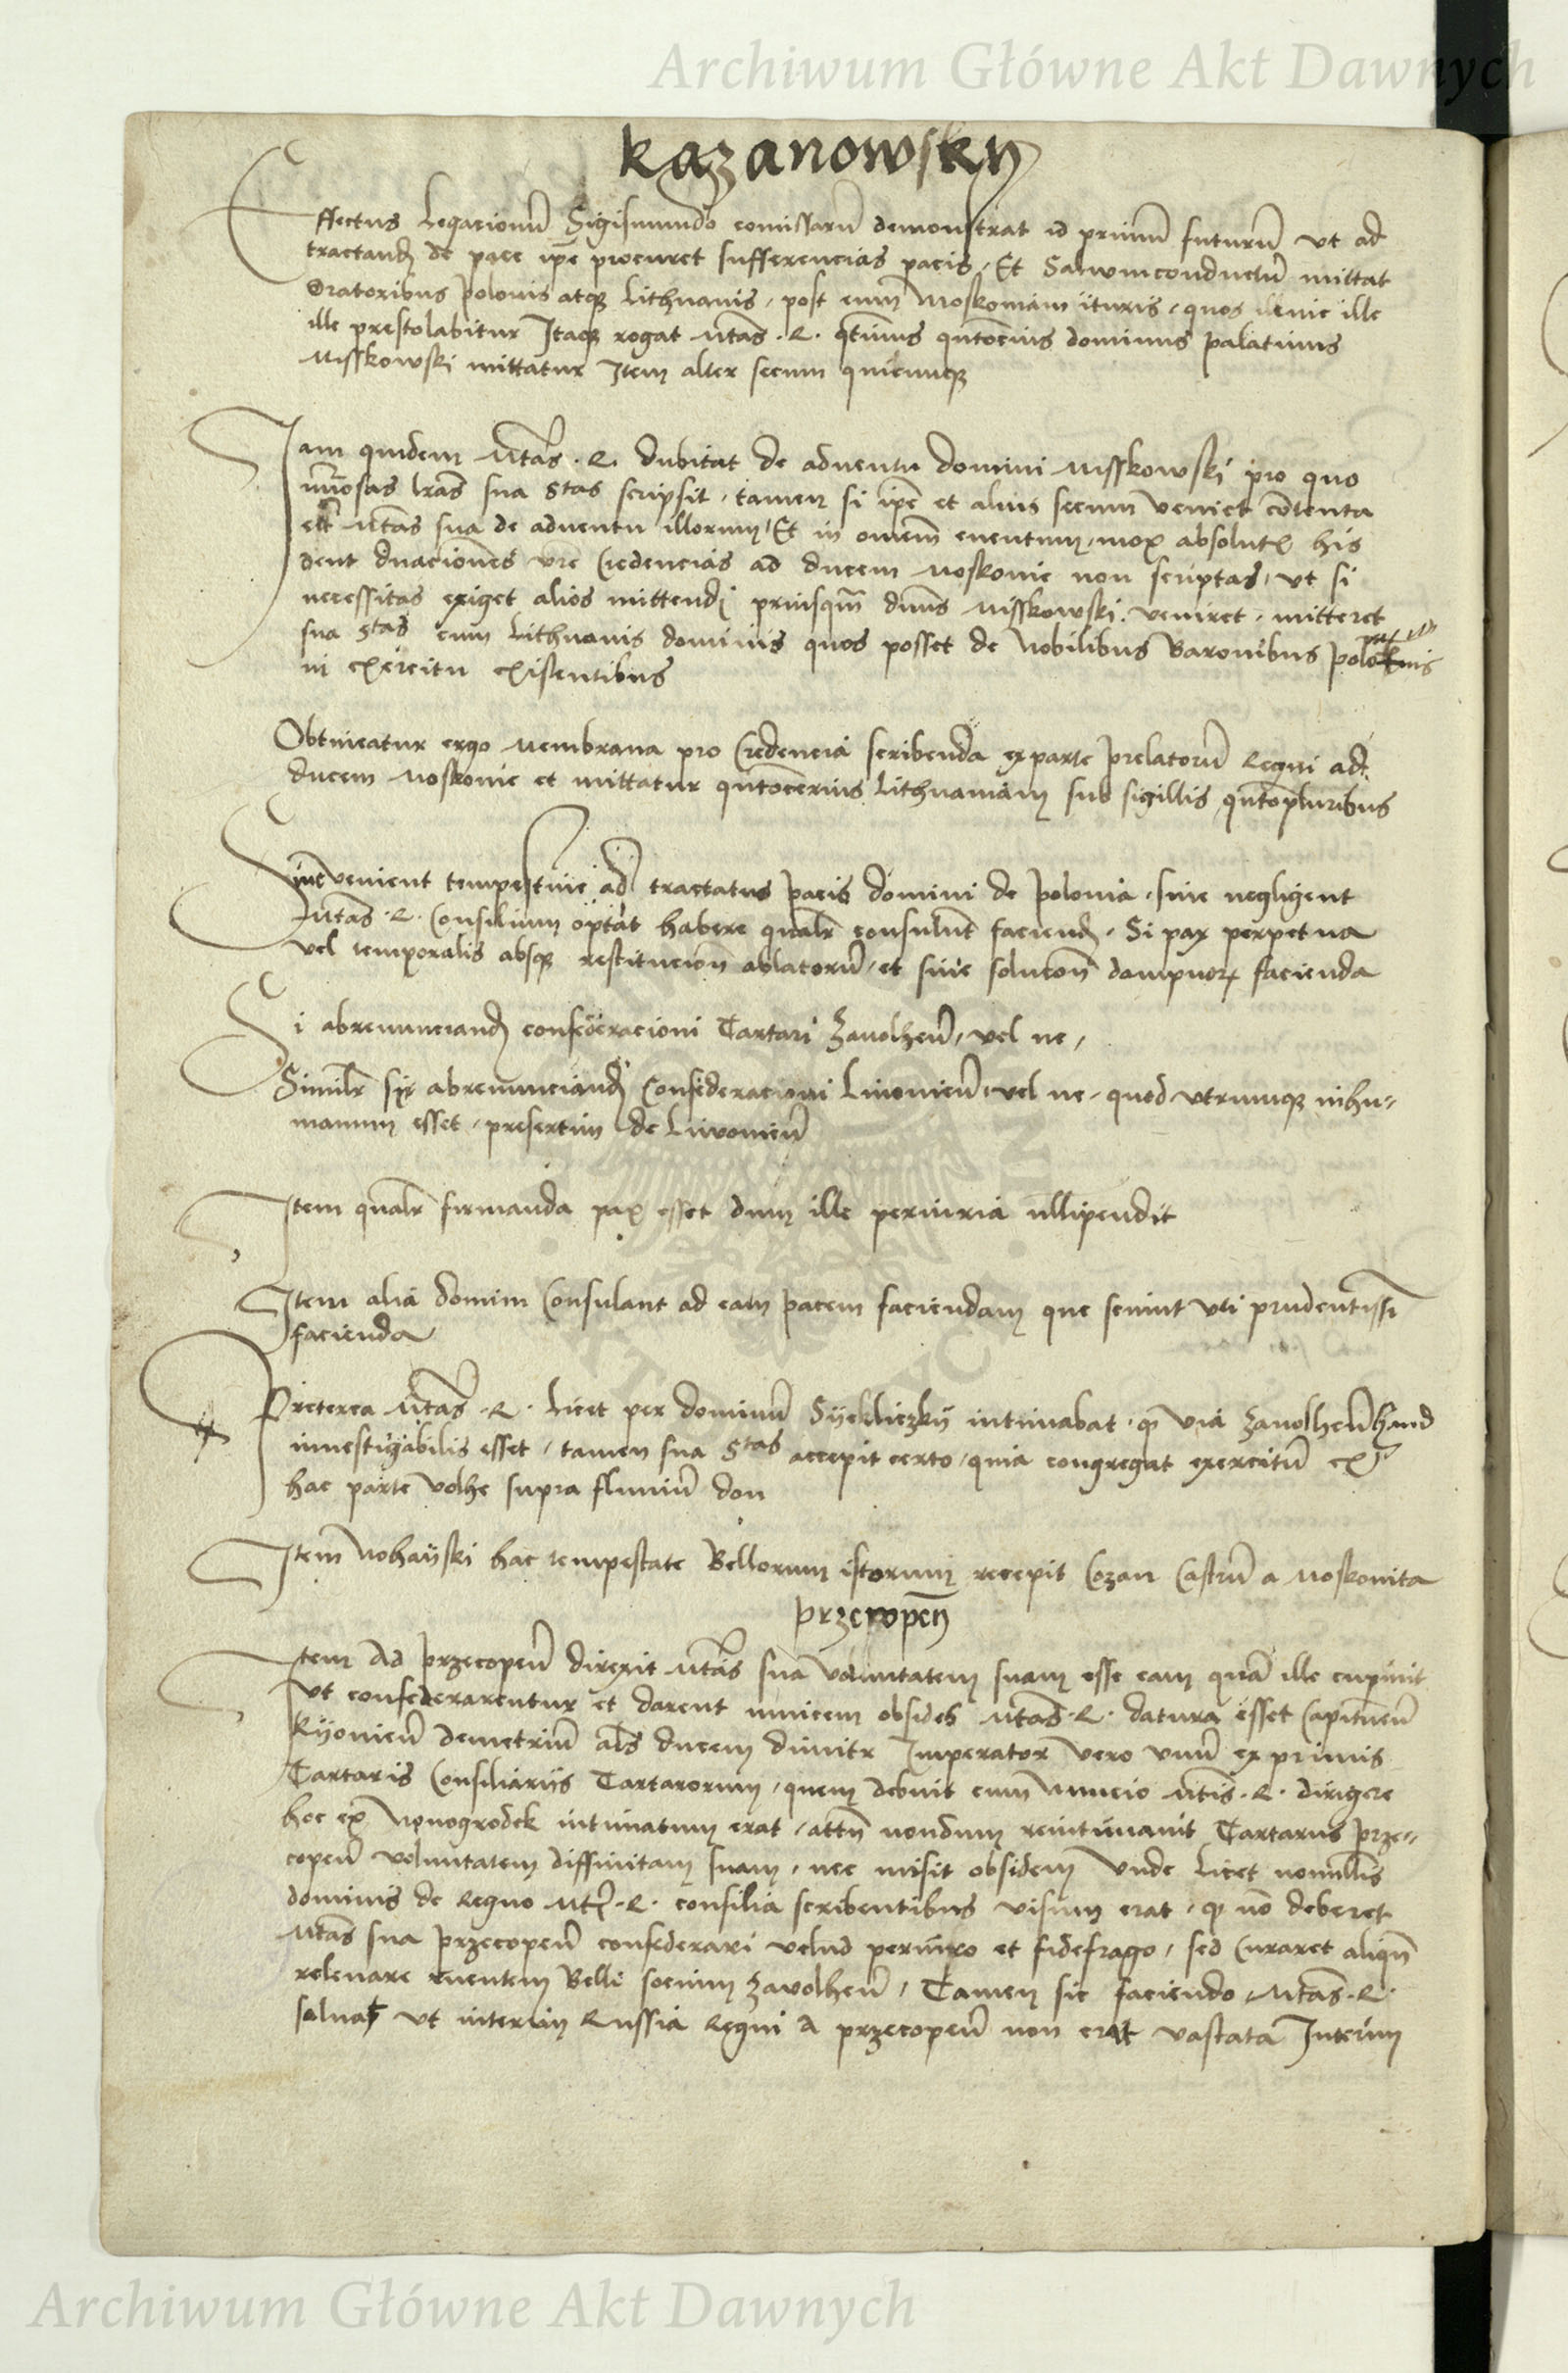 Archiwum Główne Akt Dawnych
Kazanowsky
Effectus Legacionū Sigismundo comissarū demonstrat id primū futurū ut ad
tractand de pace ipē procuret sufferencias pacis, Et Salvumconductū mittat
Oratoribus polonis atqz Lithuanis, post eum Moskoviam ituris, quos ille
ille prestolabitur Itaqz rogat Mtas. R. qtinus qntocius dominus palatinus
Misskowski mittatur Item alter secum quicumqz
Iam quidem Mtas. R. dubitat de adventu domini Misskowski pro quo
lras sua Stas scripsit, tamen si ipē et alius secum veniet cōtenta
erit Mtas sua de adventu illorum, Et in omnem eventum, mox absolut his
dent vre Credencias ad ducem Moskovie non scriptas, ut si
necessitas exiget alios mittendi priusqm dnus Misskowski veniret, mitteret
sua Stas cum Lithuanis dominis quos posset de Nobilibus Baronibus
in exercitu existentibus
Obtineatur ergo Membrana pro Credencia scribenda ex parte prelatorū Regni ad
ducem Moskovie et mittatur qntocius Lithuaniam sub sigillis qntopluribus
Sive venient tempestive ad tractatus pacis domini de polonia, sive negligent
Mtas. R. Consilium optat habere qualr consulunt faciend. Si pax perpetua
vel temporalis absqz restitucion ablatorū, et sine solucon dampnor facienda
Si abrenunciand confederacioni Tartari Zavolhen, vel ne,
Similr si abrenunciand Confederacioni Livonien, vel ne, quod utrumqz inhu-
manum esset, presertim de Livonien
Item qualr firmanda pax esset dum ille periuria nllipendit
Item alia domini Consulant ad eam pacem faciendam que scivint uti prudentissi
facienda
Preterea Mtas. R. Licet per dominū Syekliczky intimabat, q via Zavolhen haud
investigabilis esset, tamen sua Stas accepit certo, quia congregat exercitū ex
hac parte volhe supra fluviū don
Item Nohayski hac tempestate Bellorum istorum recepit Cozan Castrū a Moskovita
przecopen
Item Ad przecopen direxit Mtas sua voluntatem suam esse eam quā ille cupivit
Ut confederarentur et darent invicem obsides Mtas. R. datura esset Capitneū
Kyovien Demetriū als ducem dimitr Imperator vero unū ex primis
Tartaris Consiliariis Tartarorum, quem debuit cum Nuncio Mtis. R. dirigere
hoc ex Novogrodek intimatum erat, attn nondum reintimavit Tartarus prze-
copen voluntatem diffinitam suam, nec misit obsidem Unde licet nonnullis
dominis de Regno Mti. R. consilia scribentibus visum erat, q nō deberet
Mtas sua przecopen confederari velud periuro et fidefrago, sed Curaret aliqn
relevare ruentem Belli socium Zavolhen, Tamen sic faciendo Mtas. R.
salvat ut interim Russia Regni A przecopen non erat vastata Interim
Archiwum Główne Akt Dawnych